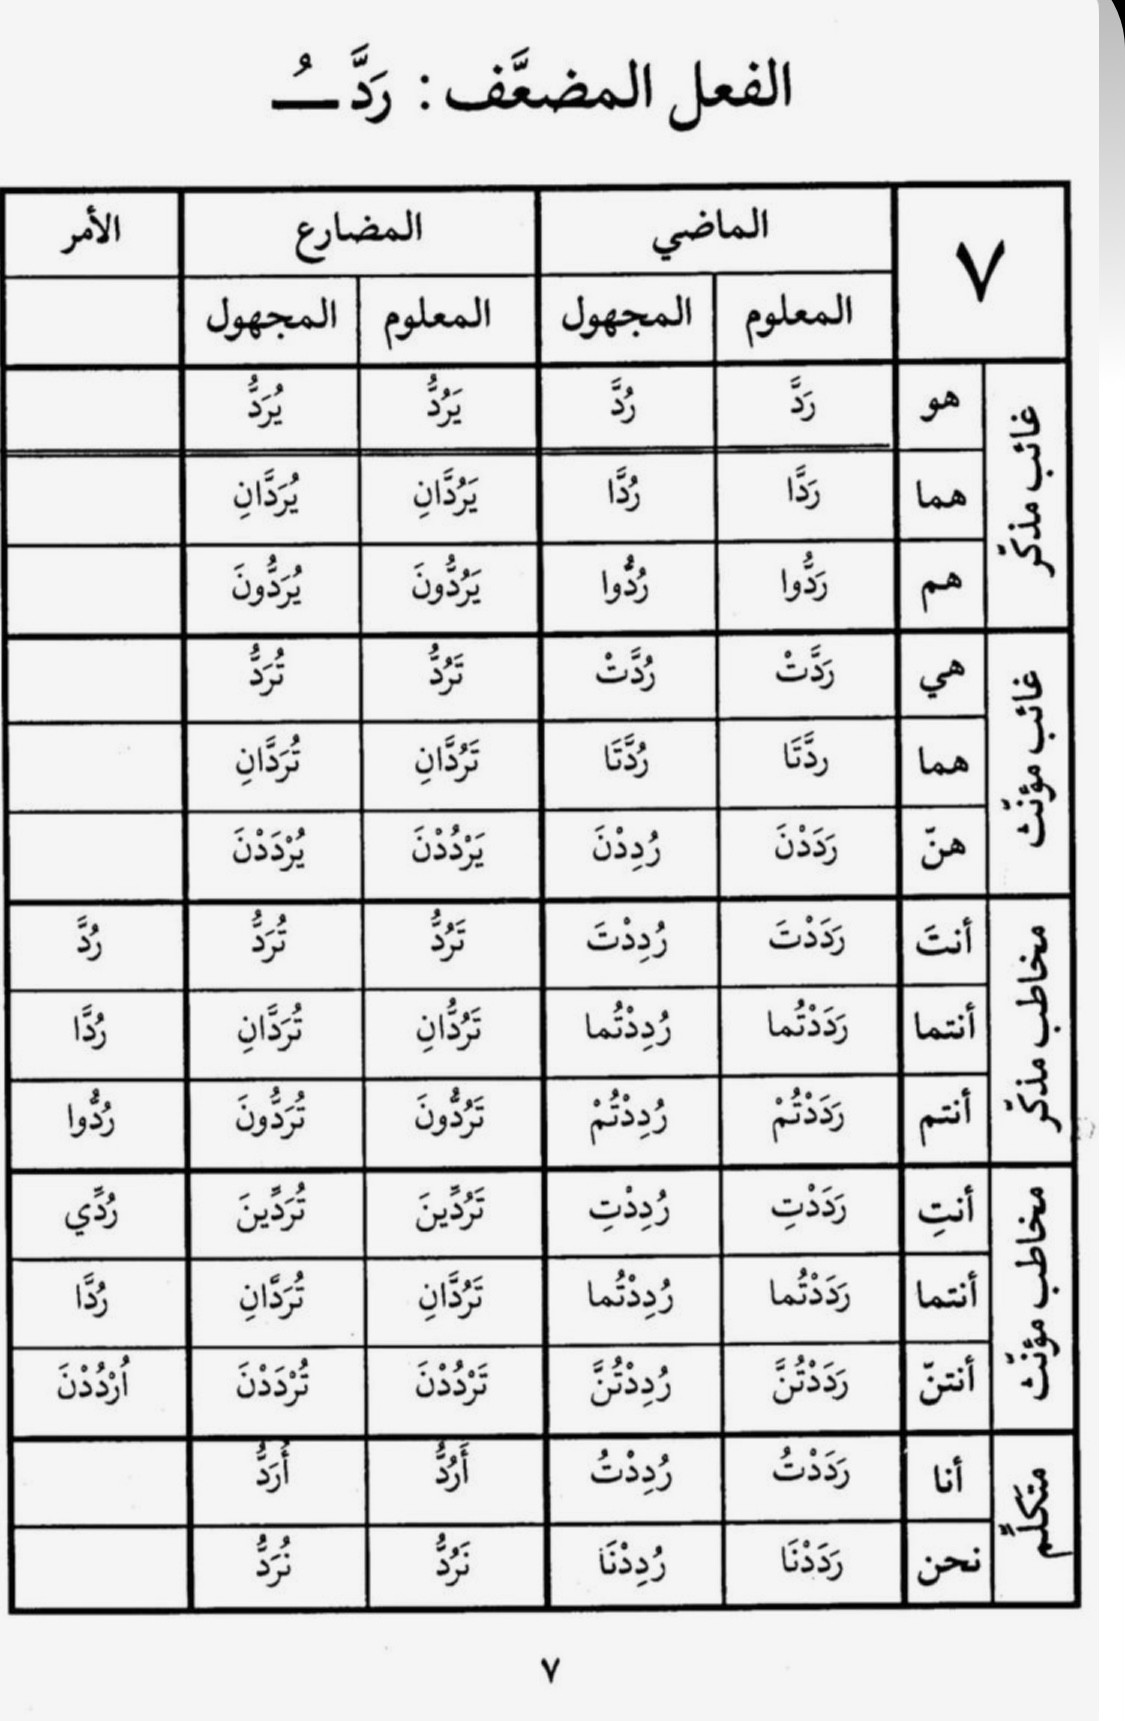 الفعل المضعَّف : رَدَّ ـُ
٧ الماضي المضارع الأمر
المعلوم المجهول المعلوم المجهول
غائب مذكّر
هو رَدَّ رُدَّ يَرُدُّ يُرَدُّ
هما رَدَّا رُدَّا يَرُدَّانِ يُرَدَّانِ
هم رَدُّوا رُدُّوا يَرُدُّونَ يُرَدُّونَ
غائب مؤنّث
هي رَدَّتْ رُدَّتْ تَرُدُّ تُرَدُّ
هما ردَّتَا رُدَّتَا تَرُدَّانِ تُرَدَّانِ
هنّ رَدَدْنَ رُدِدْنَ يَرْدُدْنَ يُرْدَدْنَ
مخاطب مذكّر
أنتَ رَدَدْتَ رُدِدْتَ تَرُدُّ تُرَدُّ رُدَّ
أنتما رَدَدْتُما رُدِدْتُما تَرُدُّانِ تُرَدَّانِ رُدَّا
أنتم رَدَدْتُمْ رُدِدْتُمْ تَرُدُّونَ تُرَدُّونَ رُدُّوا
مخاطب مؤنّث
أنتِ رَدَدْتِ رُدِدْتِ تَرُدِّينَ تُرَدِّينَ رُدِّي
أنتما رَدَدْتُما رُدِدْتُما تَرُدَّانِ تُرَدَّانِ رُدَّا
أنتنّ رَدَدْتُنَّ رُدِدْتُنَّ تَرْدُدْنَ تُرْدَدْنَ اُرْدُدْنَ
متكلّم
أنا رَدَدْتُ رُدِدْتُ أَرُدُّ أُرَدُّ
نحن رَدَدْنَا رُدِدْنَا نَرُدُّ نُرَدُّ
٧